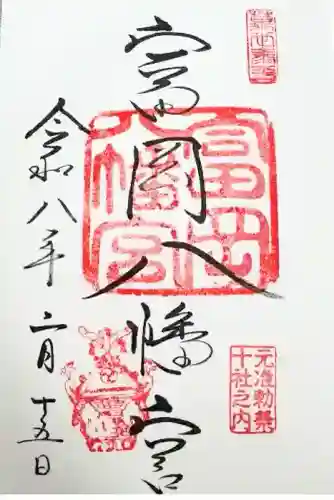 富岡八幡宮
富岡八幡宮
元准勅祭
十社之内
令和八年二月十五日